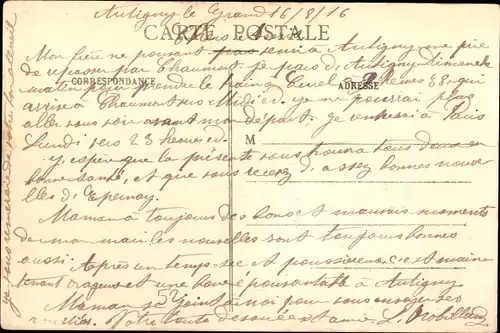 Autigny le Grand 16/8/16
CARTE POSTALE
Mon frère ne pouvant pas venir à Autigny me prie
de repasser par Chaumont. Je pars d'Autigny dimanche
CORRESPONDANCE
ADRESSE
matin pour prendre le train 38 qui
arrive à Chaumont vers Midi et je ne pourrai plus
aller vous voir avant mon départ. Je rentrerai à Paris
Lundi vers 23 heures
M
J'espère que la présente vous trouvera tous deux en
bonne santé, et que vous recevez d'assez bonnes nouvelles
d'Epernay.
Maman a toujours des bons et mauvais moments
de mon mari les nouvelles sont toujours bonnes
aussi. Après un temps sec et poussiéreux c'est maintenant
orageux et une boue à Autigny
Maman se joint à moi pour vous envoyer nos
amitiés. Votre toute dévouée et amie